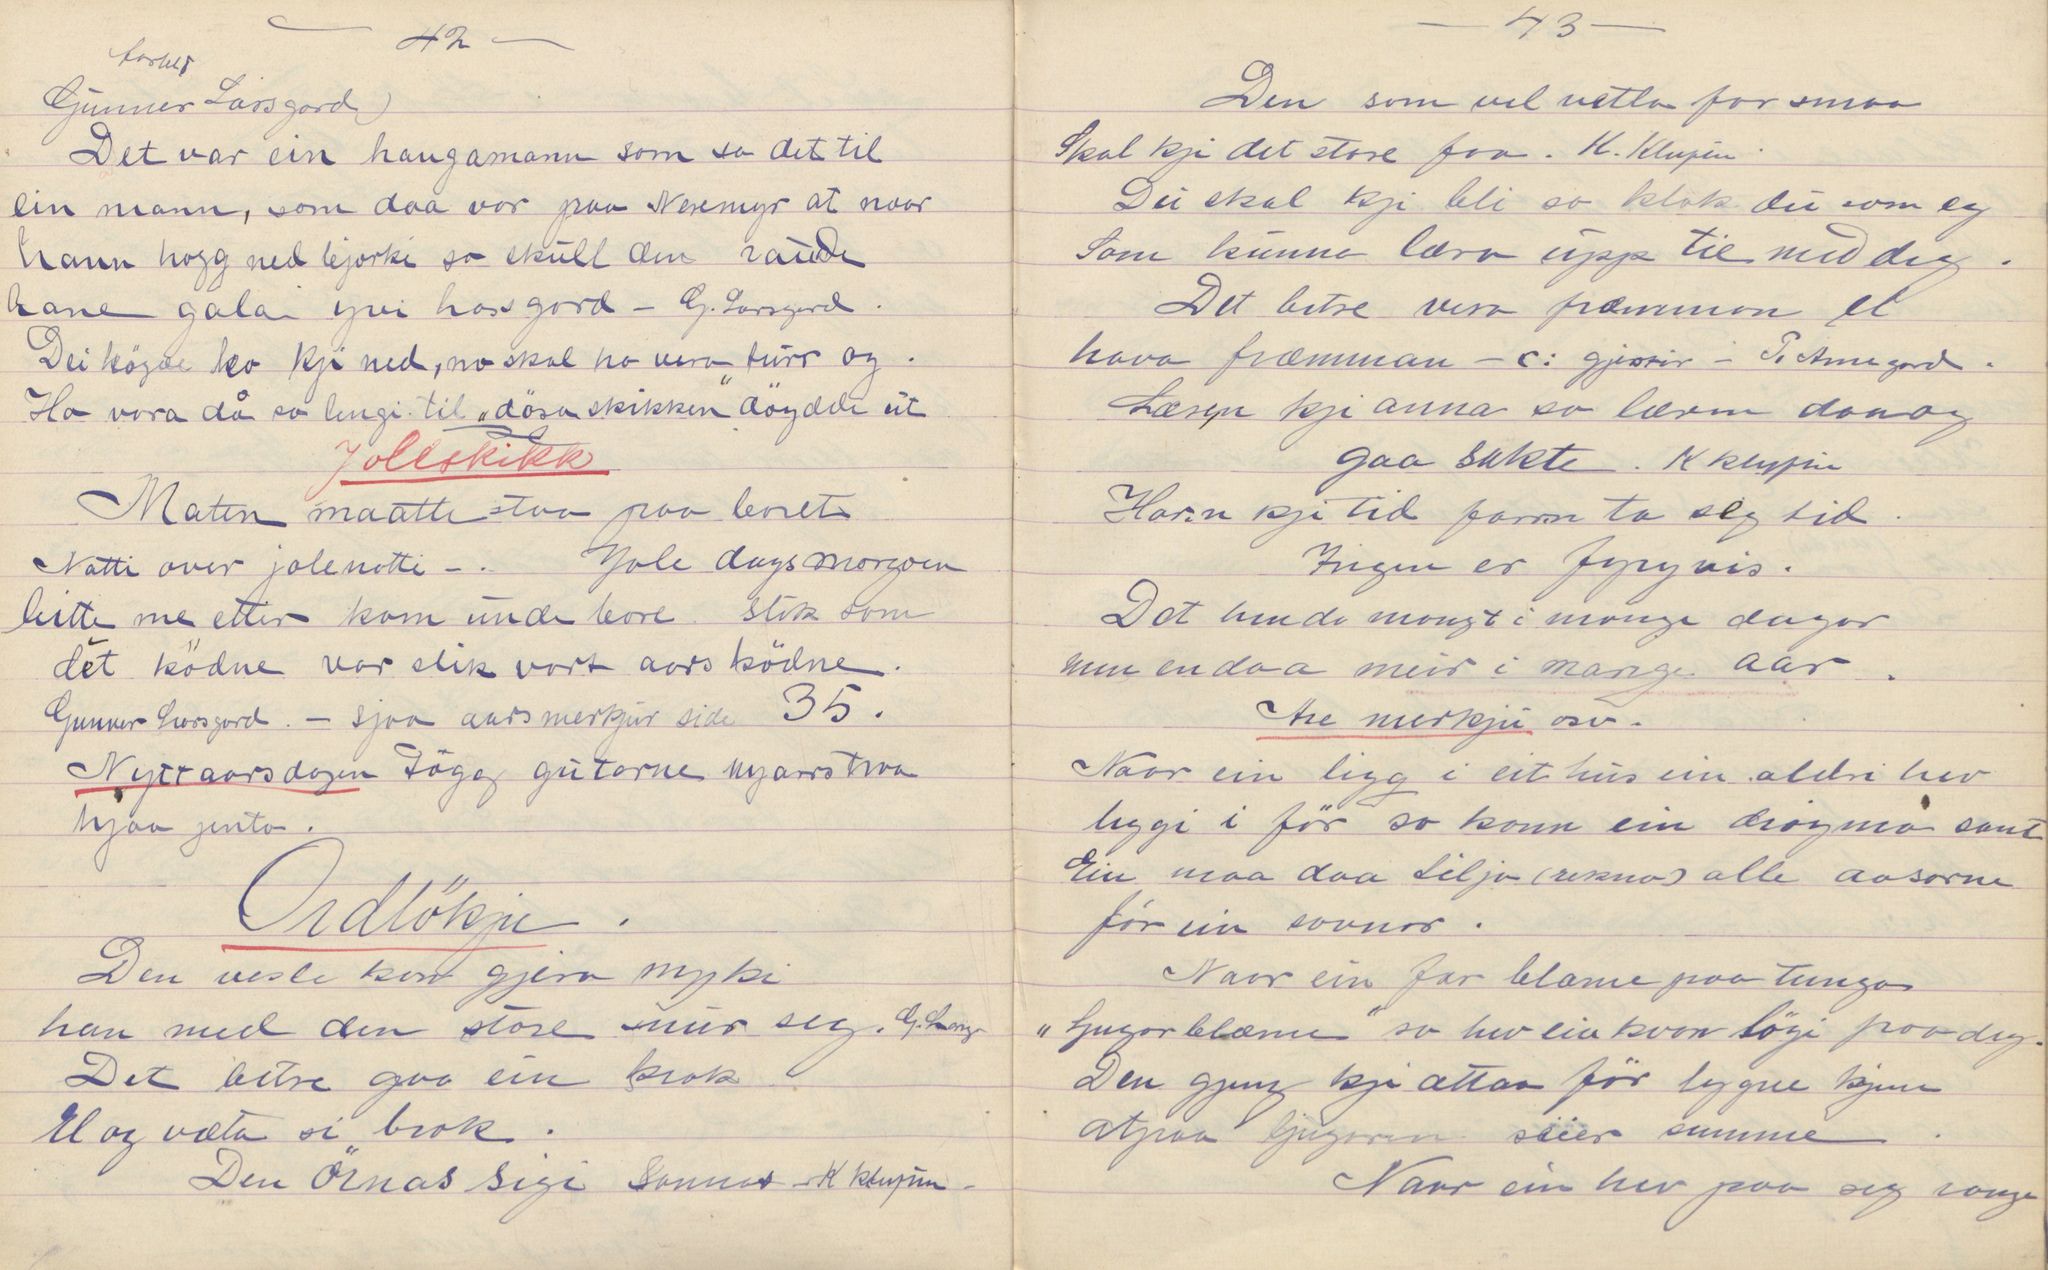 — 42 —
fortel
Gunner Larsgard)
Det var ein haugamann som sa det til
ein mann, som daa var paa Neremyr at naar
hann hogg ned bjørki so skull den raude
hane gala yvi hos gord — G. Larsgard.
Dei högde ho kji ned, no skal ho vera turr og.
Ha vara då so lengi til "dösa skikken" döydde ut
Joleskikk
Maten maatte staa paa boret
Natti over jolenatti —. Jole dagsmorgoen
leitte me etter korn unde bore. Slik som
det ködne var slik vart aars ködne.
Gunner Larsgard. — sjaa aarsmerkjur side 35.
Nyttaarsdagen tögo gutarne nyaarstraa
hjaa jento.
Ordtökje.
Den vesle kan gjera mykji
han med den store mur seg. G. Larsg.
Det betre gaa ein krok
El og væta si brok.
Den örnas sigi sannas — K Klupin —
— 43 —
Den som vel vetla for smaa
Skal kji det store faa. K. Klupin.
Du skal kji bli so klok du som eg
Som kunna læra upp til med deg.
Det betre vera fræmman el
hava fræmman — c: gjestir — T. Arnegard.
Læsen kji anna so lærm daa og
gaa sakte. K Klupin
Har'n kji tid farm ta seg tid.
Ingen er fyryvis.
Det henda mangt i mange dagar
men endaa meir i mange aar.
Are merkju osv.
Naar ein ligg i eit hus ein aldri hev
leggi i för so kann ein drøyma sant
Ein maa daa telja (rekna) alle aasarne
för ein sovnar.
Naar ein far blæme paa tunga
"Ljugarblæme" so hev ein kvar lögi paa deg.
Den gjeng kji attaa för lygne kjem
atpaa ljugaren seier summe.
Naar ein hev paa seg range